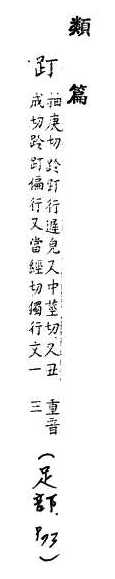 類篇
趶
抽庚切跉趶行遲皃又中莖切又丑
成切跉趶偏行又當經切獨行文一
重音三
(足部 P.73)